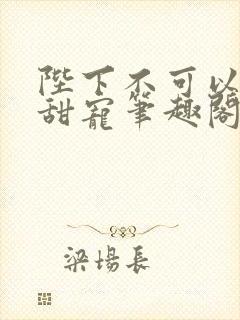 陛下不可以
甜寵筆趣閣
梁場長